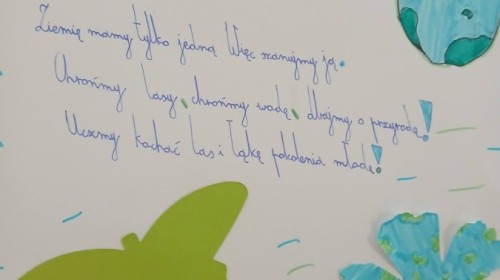 Ziemię mamy tylko jedną Więc szanujmy ją.
Chrońmy lasy, chrońmy wodę, dbajmy o przyrodę!
Uczmy kochać las i łąkę pokolenia młode!